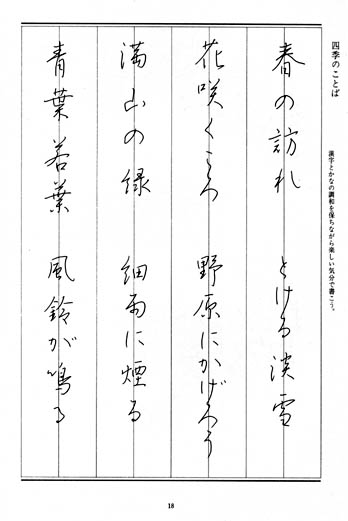 四季のことば
漢字とかなの調和を保ちながら楽しい気分で書こう。
春の訪れ とける淡雪
花咲くころ 野原にかげろう
満山の緑 細雨に煙る
青葉若葉 風鈴が鳴る
18